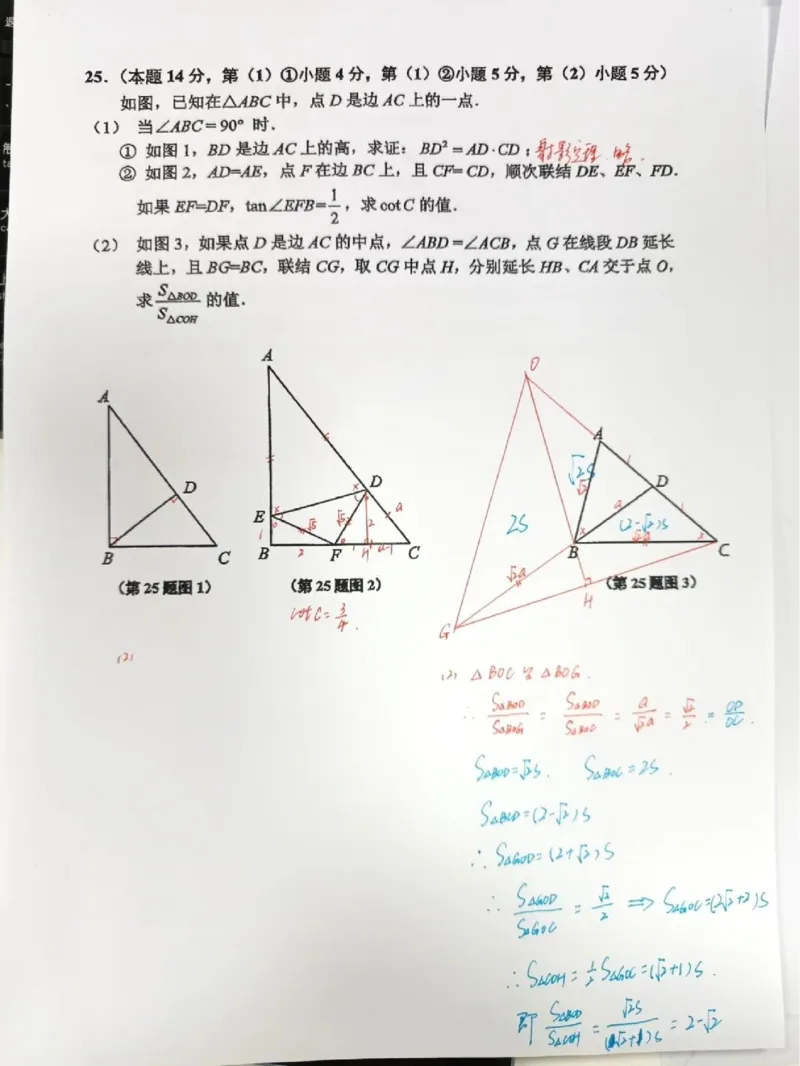 25.（本题 14 分，第（1）①小题 4 分，第（1）②小题 5 分，第（2）小题 5 分）
如图，已知在△ABC 中，点 D 是边 AC 上的一点.
（1） 当∠ABC = 90° 时.
① 如图 1，BD 是边 AC 上的高，求证：BD² = AD·CD；射影定理 略.
② 如图 2，AD=AE，点 F 在边 BC 上，且 CF= CD，顺次联结 DE、EF、FD.
如果 EF=DF，tan∠EFB= 1/2，求 cot C 的值.
（2） 如图 3，如果点 D 是边 AC 的中点，∠ABD =∠ACB，点 G 在线段 DB 延长
线上，且 BG=BC，联结 CG，取 CG 中点 H，分别延长 HB、CA 交于点 O，
求 S△BOD/S△COH 的值.
A
B
C
D
A
× D
a
E ×
1 √5 √5 2
B 2 F 1 H a-1 C
O
A
√2S
1
D
2S a 1
(2-√2)S
× B √2a × C
√2a
H
G
（第 25 题图 1）
（第 25 题图 2）
（第 25 题图 3）
cot C = 3/4.
(2)
(2) △BOC ≌ △BOG.
∴ S△BOD/S△BOG = S△BOD/S△BOC = a/√2a = √2/2 = OD/OC.
S△BOD=√2S. S△BOC=2S.
S△BCD=(2-√2)S
∴ S△GOD=(2+√2)S
∴ S△GOD/S△GOC = √2/2 ⟹ S△GOC=(2√2+2)S
∴ S△COH=1/2 S△GOC=(√2+1)S.
即 S△BOD/S△COH = √2S/(√2+1)S = 2-√2